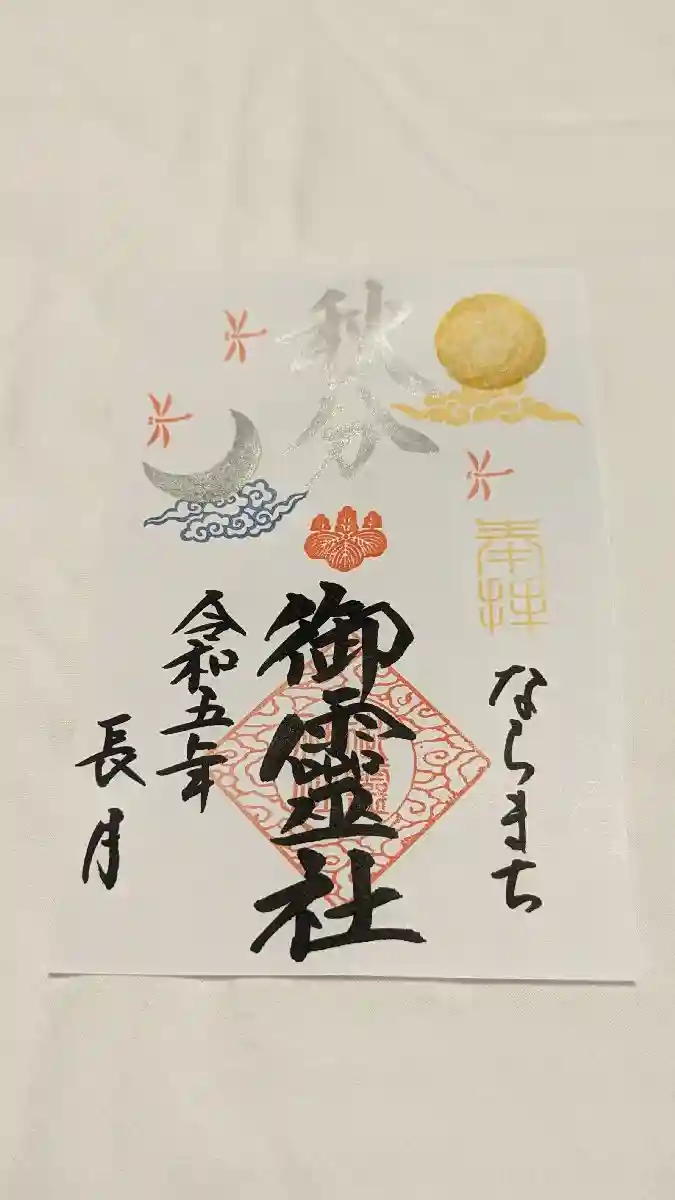 秋分
奉拝
ならまち
御霊社
令和五年
長月